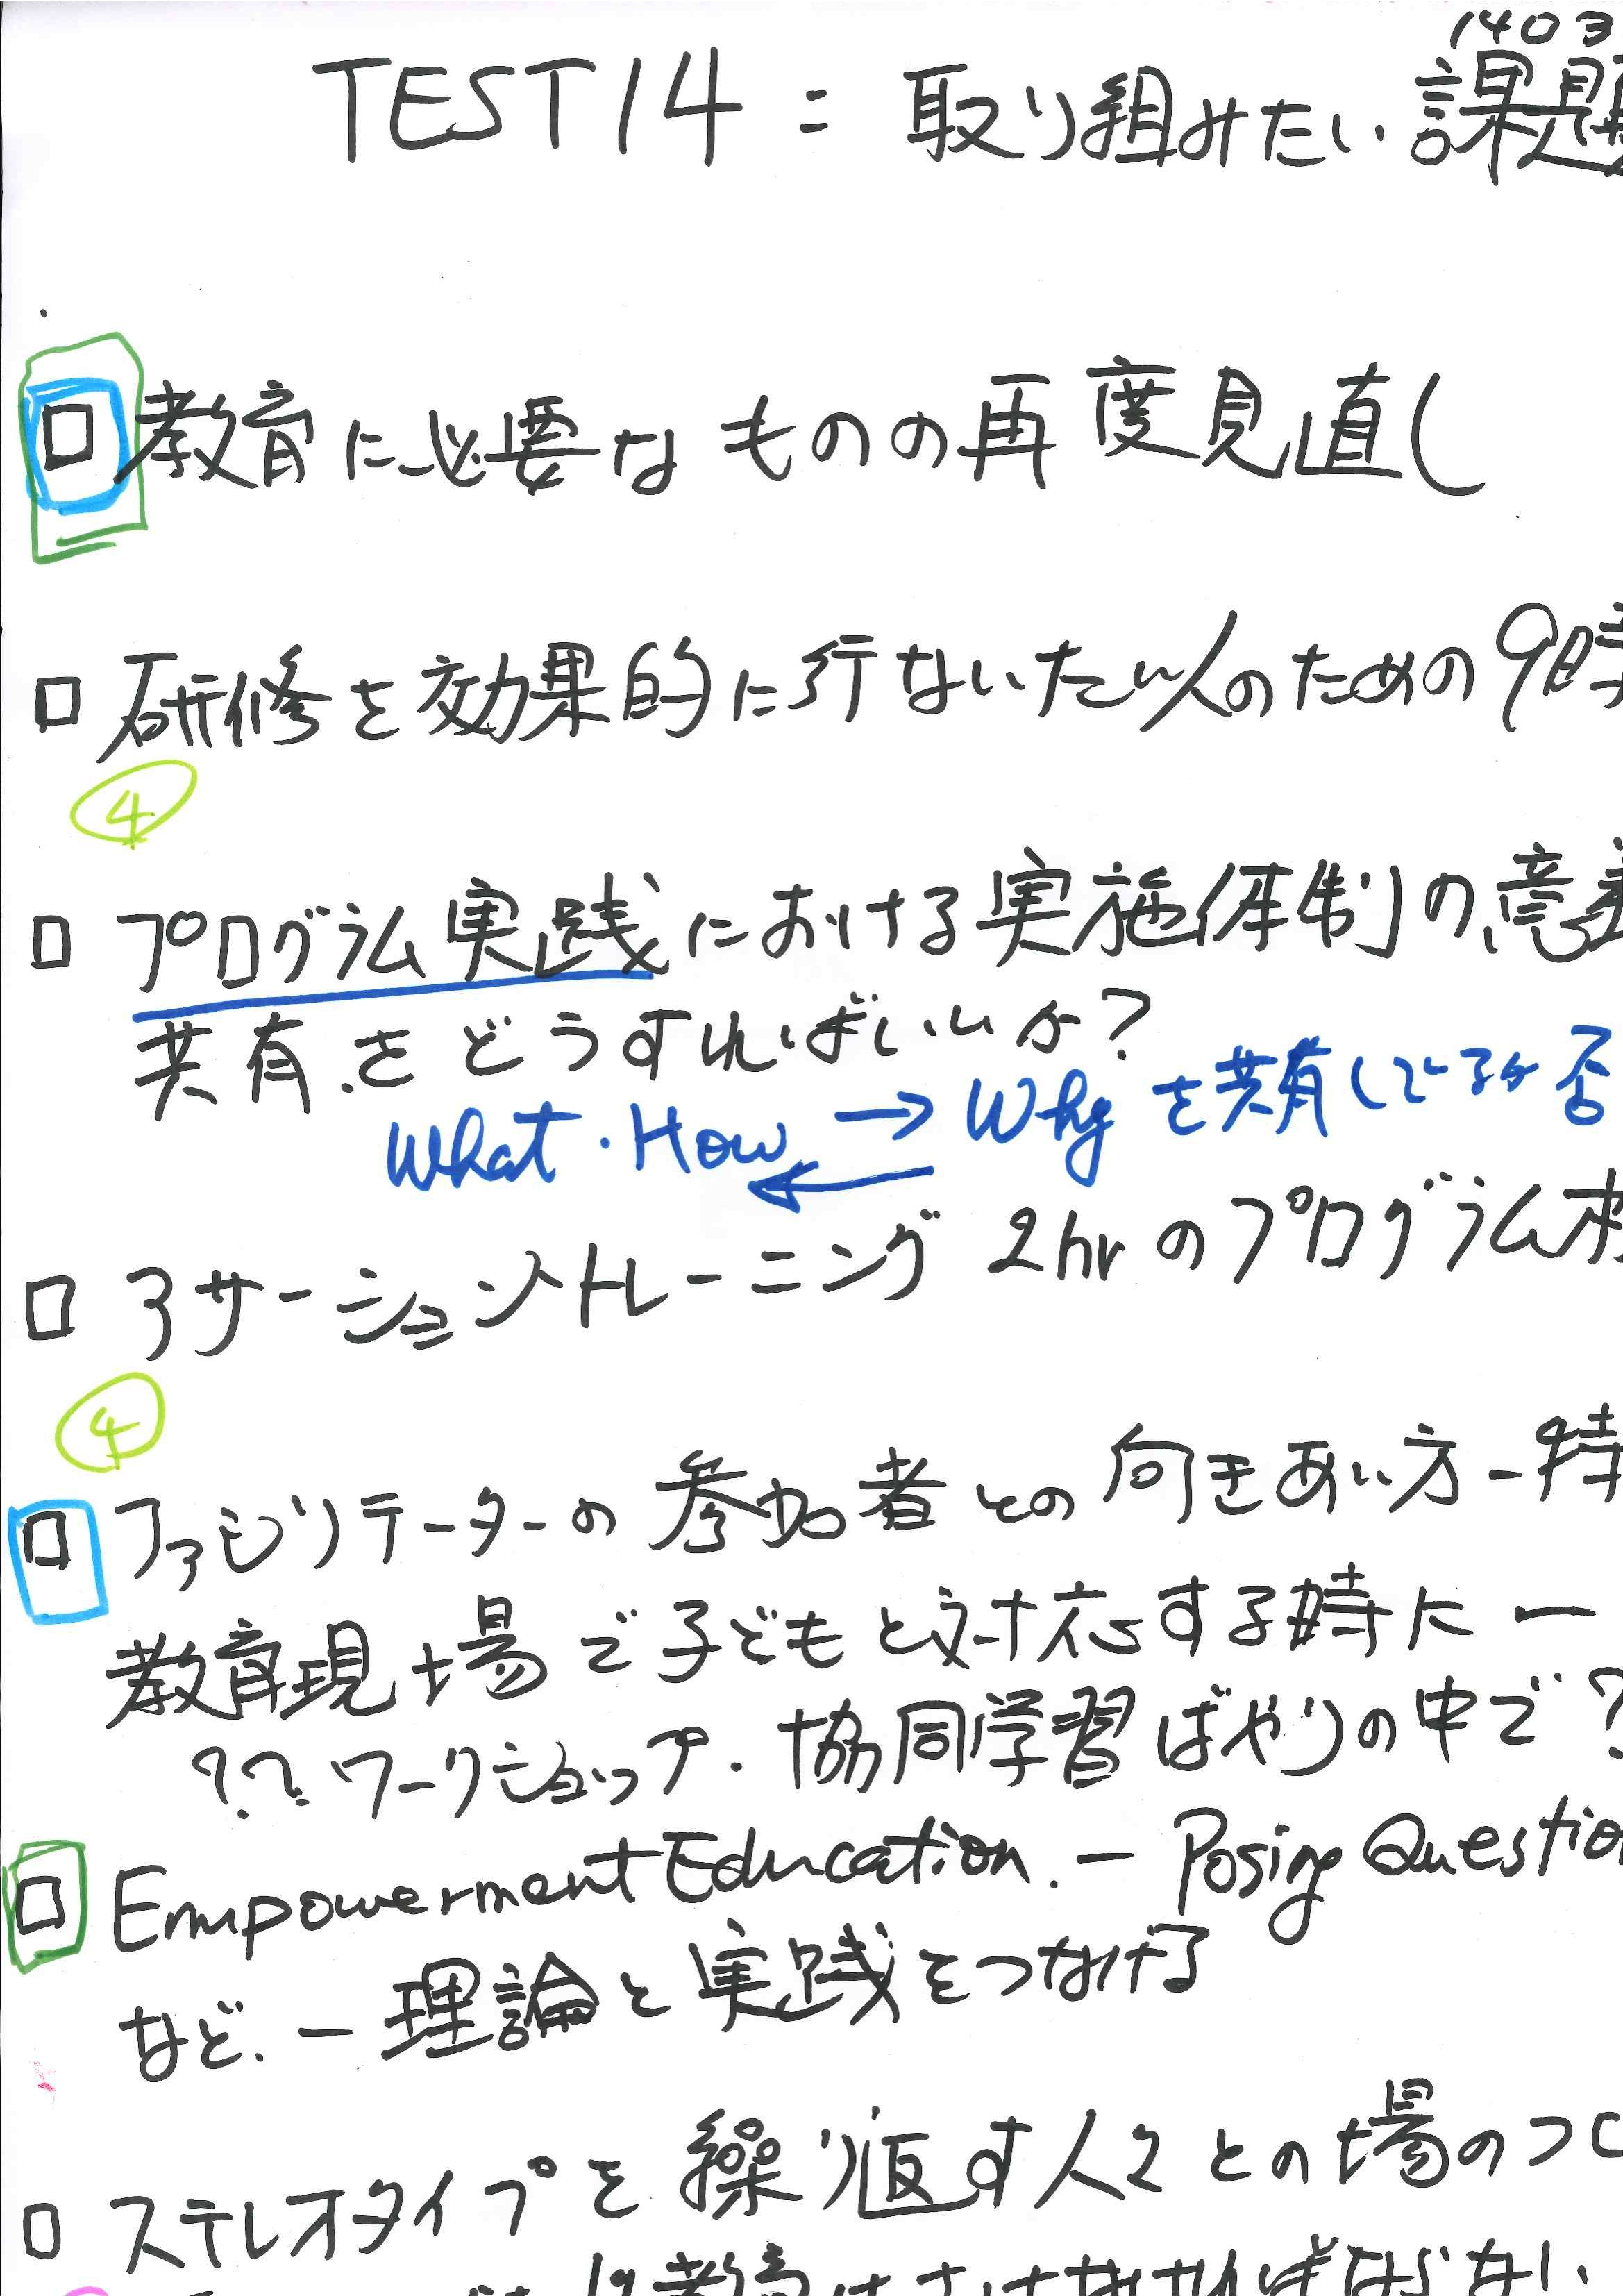 1403
TEST14 = 取り組みたい課題
□ 教育に必要なものの再度見直し
□ 研修を効果的に行ないたい人のための9時
④
□ プログラム実践における実施体制の意義
共有をどうすればいいか?
What・How → Why を共有しているか否
←
□ 3サーションートレーニング 2hrのプログラム
④
□ ファシリテーターの参加者との向きあい方ー特
教育現場で子どもと対応する時にー
?? ワークショップ・協同学習ばやりの中で?
□ Empowerment Education. ー Posing Question
など. ー理論と実践をつなげる
□ ステレオタイプを繰り返す人々との場の
なければならない